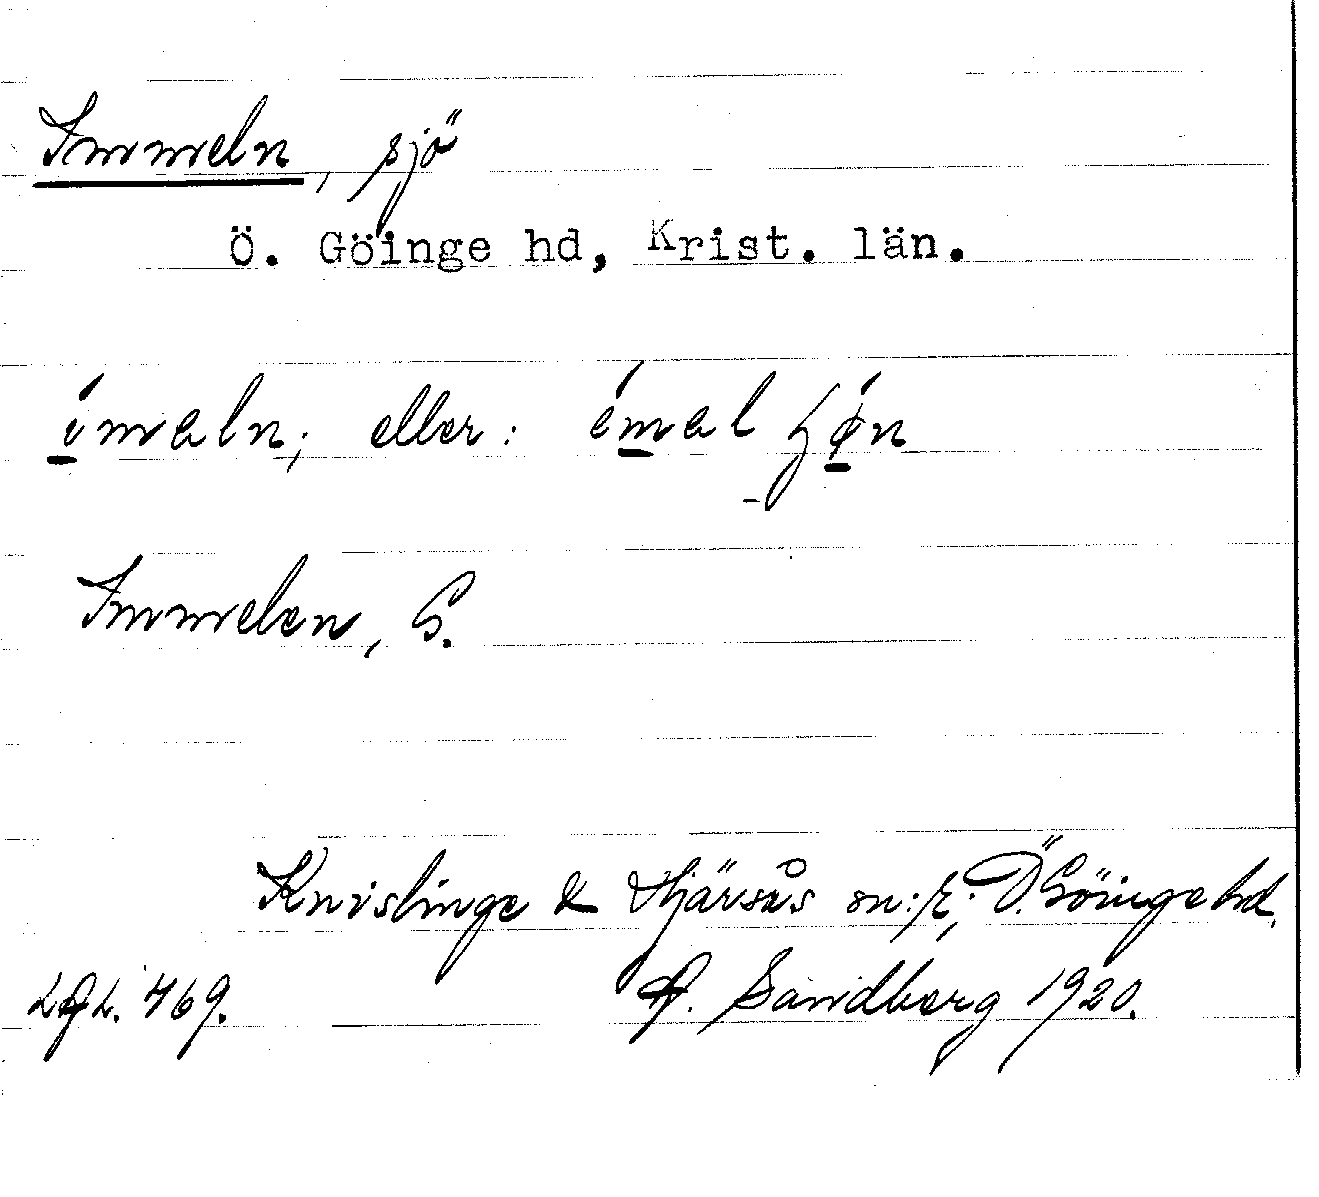 Immeln, sjö
Ö. Göinge hd, Krist. län.
ímaln; eller: émal
Immelen, G.
Knislinge & Hjärsås sn:r, Ö. Göinge hd.
469. Sandberg 1920.